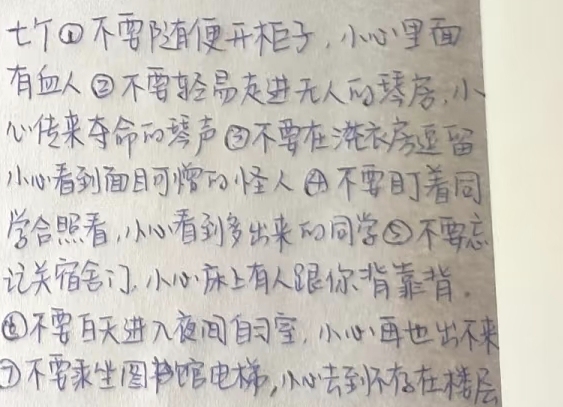 七个①不要随便开柜子，小心里面
有血人②不要轻易走进无人的琴房，小
心传来夺命的琴声③不要在洗衣房逗留
小心看到面目可憎的怪人④不要盯着同
学合照看，小心看到多出来的同学⑤不要忘
记关宿舍门，小心床上有人跟你背靠背．
⑥不要白天进入夜间自习室，小心再也出不来
⑦不要乘坐图书馆电梯，小心去到不存在楼层